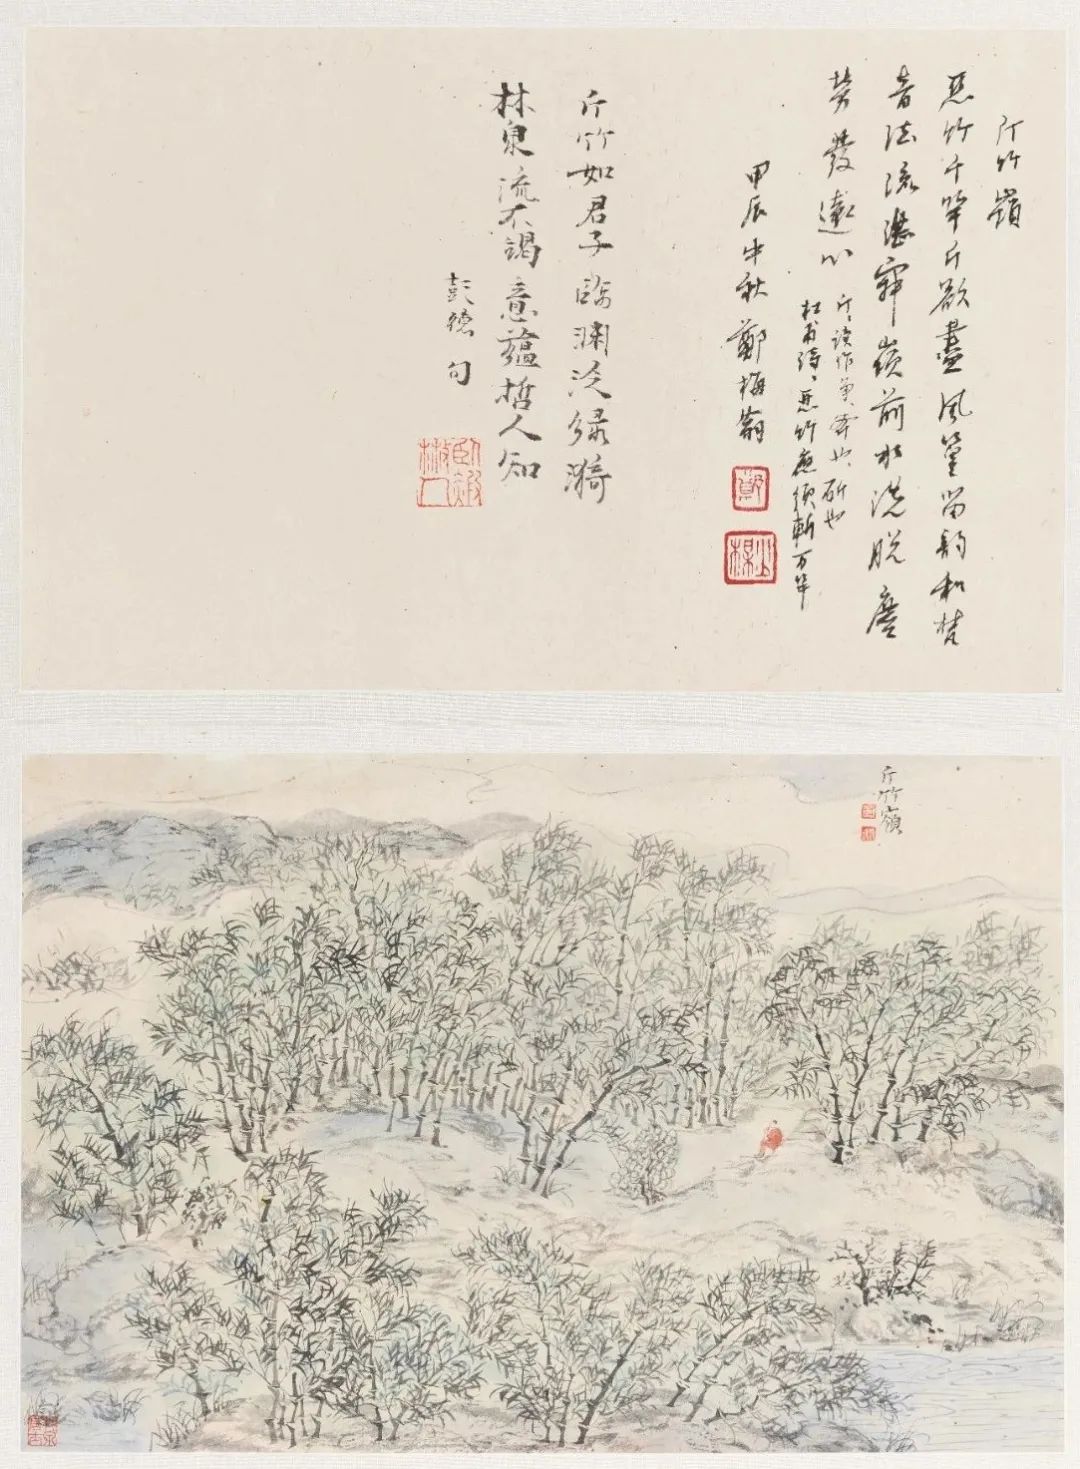 斤竹嶺
惡竹千竿斤欲盡風篁留韵和梵
音法流湛寂嶺前水洗脱塵
劳發遠心
斤、读作也、斫也
杜甫诗、恶竹应须斬万竿
甲辰中秋鄭梅翁
斤竹如君子臨淵泛绿漪
林泉流不竭意蕴哲人知
彭德句
斤竹嶺